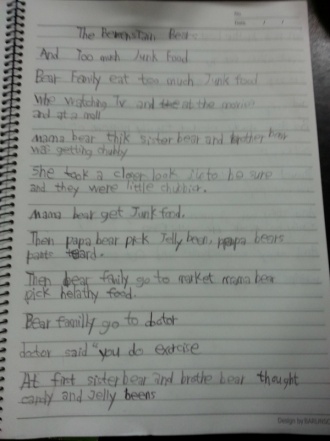 The Berenstain Bear
And Too much Junk Food
Bear Family eat too much Junk food
Whe watching Tv and the at the movie
and at a mall
mama bear thik sister bear and brother bear
was getting chubby
She took a closer look Ju to be sure
and they were little chubbier.
Mama bear get Junk food.
Then papa bear pick Jelly bean. papa bears
pants teard.
Then bear faily go to market mama bear
pick helathy food.
Bear familly go to doctor
doctor said "you do exercise
At first sister bear and brothe bear thought
candy and Jelly beens